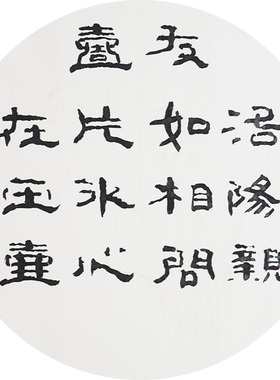 洛陽親
友如相問
壹片冰心
在玉壺